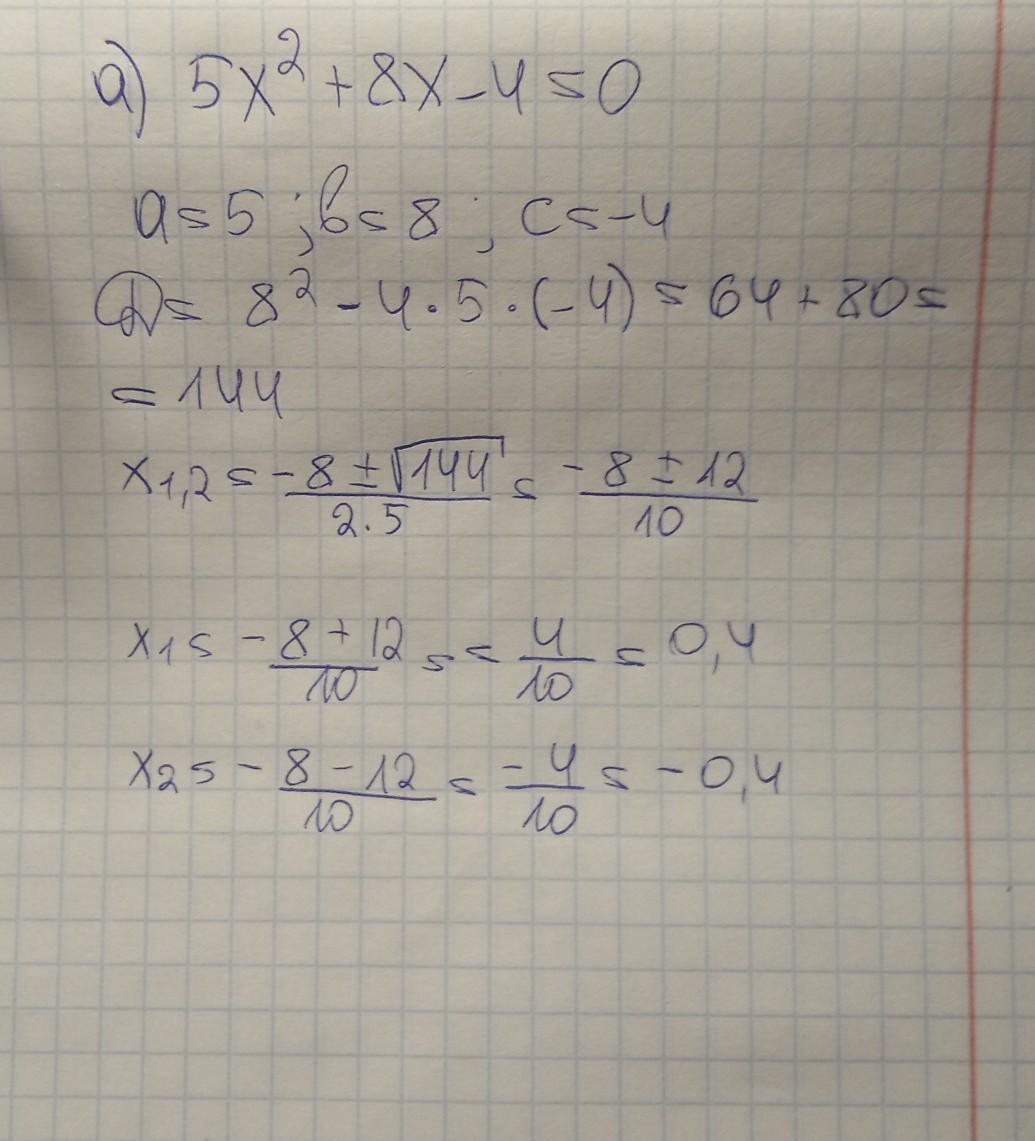 а) 5x² + 8x - 4 = 0
a = 5 ; b = 8 ; c = -4
D = 8² - 4 · 5 · (-4) = 64 + 80 =
= 144
x1,2 = (-8 ± √144)/(2·5) = (-8 ± 12)/10
x1 = (-8 + 12)/10 = = 4/10 = 0,4
x2 = (-8 - 12)/10 = -4/10 = -0,4